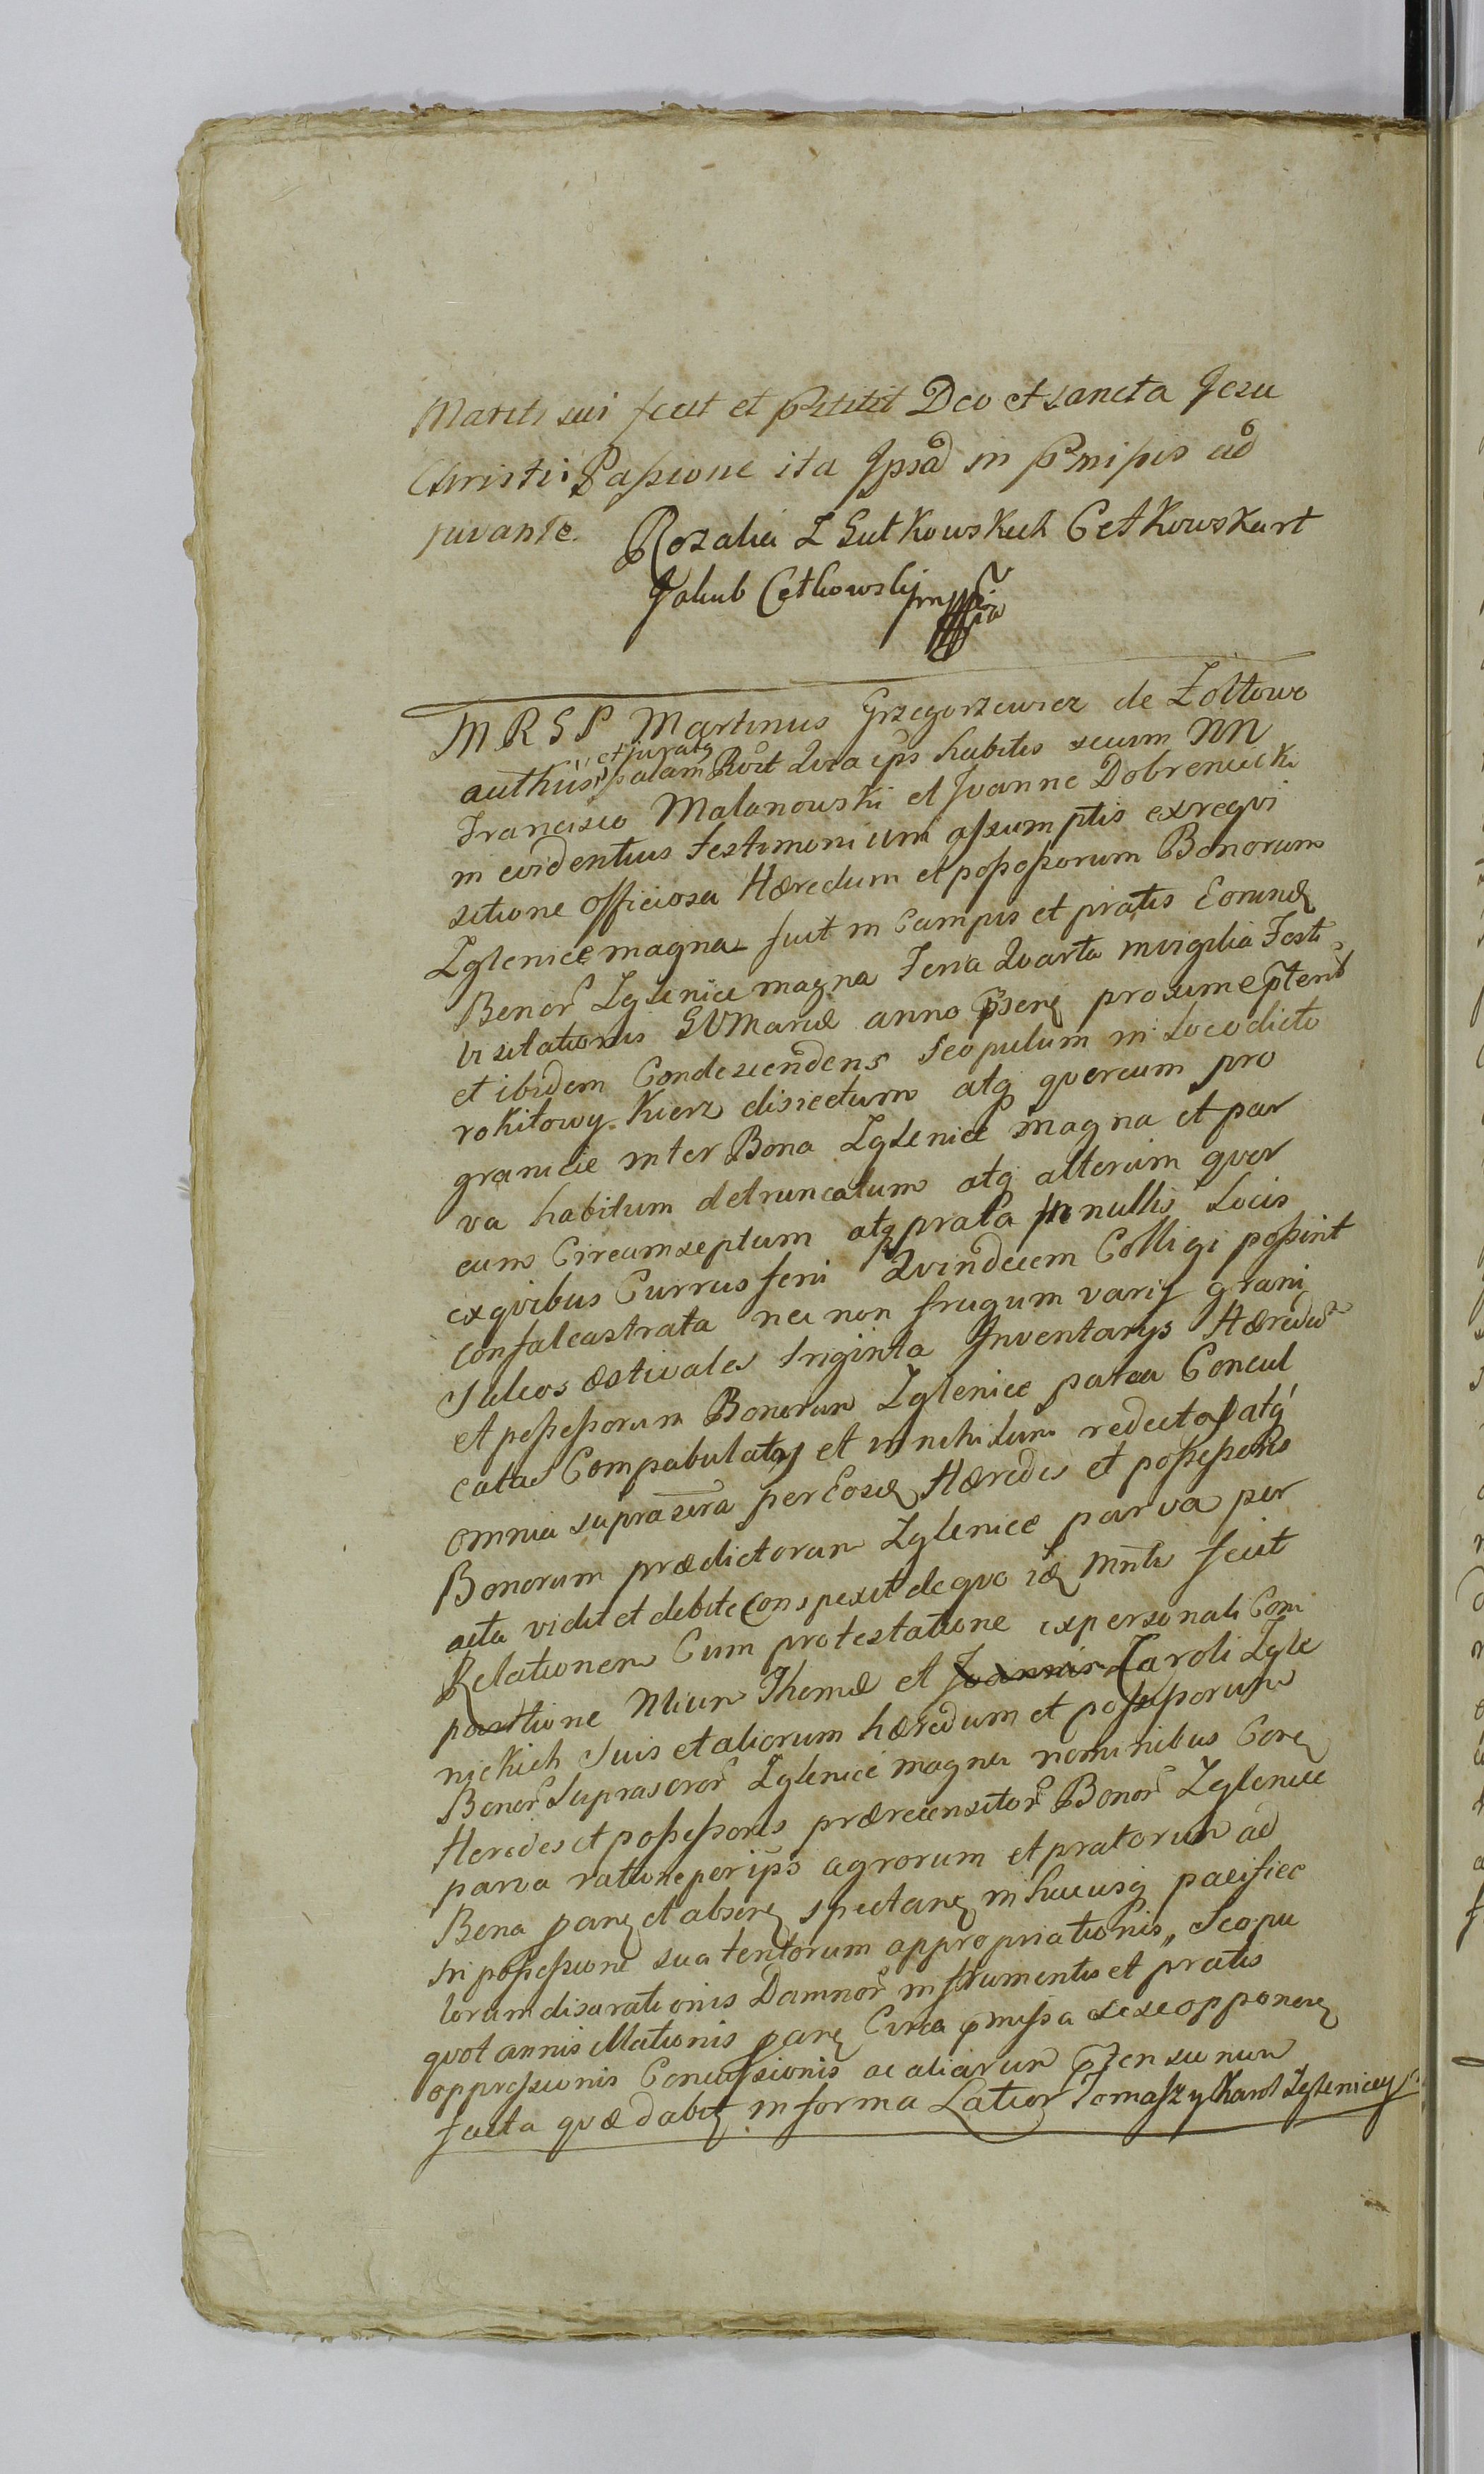 Mariti sui fecit et pstitit Deo et sancta Jesu
Christi Passione ita Ipsâ in pmissis ad
juvante. Rozalia Z Gutkowskich Cetkowskart
Jakub Cetkowski mppria
M R S P Martinus Grzegorzewicz de Żołtowo
et juratq
authus palam Rvit Qvia ips habitis secum NN
Francisco Malanowski et Joanne Dobreniecki
in evidentius testimonium assumptis ex reqvi
sitione officiosa Hæredum et possessorum Bonorum
Zglenice magna fuit in Campis et pratis Eorund
Bonor Zglenice magna Feria Qvarta in vigilia Festi
Visitationis BVMariæ anno psenti proxime pterit
et ibidem Condescendens scopulum in Loco dicto
rokitowy Kierz disiectum atq qvercum pro
granicie inter Bona Zglenice magna et par
va habitum detruncatum atq alterum qver
cum Circumseptum atq prata in nullis Locis
ex qvibus Currus feni Qvindecem Colligi possint
Confalcastrata nec non frugum varij grani
Sulcos æstivales triginta Inventarys Hæredum
et possessorum Bonorum Zglenice parva Concul
catas Compabulatas et in nihilum redectas atq
omnia suprascra per Eosd Hæredes et possessores
Bonorum prædictorum Zglenice parva per
acta vidit et debite Conspexit de qvo id Mnlis fecit
Relationem Cum protestatione ex personali Com
paritione Nlium Thomæ et Joannis Caroli Zgle
nickich Suis et aliorum hæredum et possessorum
Bonor Suprascror Zglenice magna nominibus Cone
Heredes et possessores prærecensitor Bonor Zglenice
parva ratione per ips agrorum et pratorum ad
Bona pare et absere spectare in hucusq pacifice
in possessione sua tentorum appropriationis, Scopu
lorum disarationis Damnor in frumentis et pratis
qvot annis illationis pare Circa pmissa sese opponere
oppressionis Concussionis ac aliarum ptensionum
facta qvæ dabit in forma Latiori Tomasz y Karol Zgleniccy